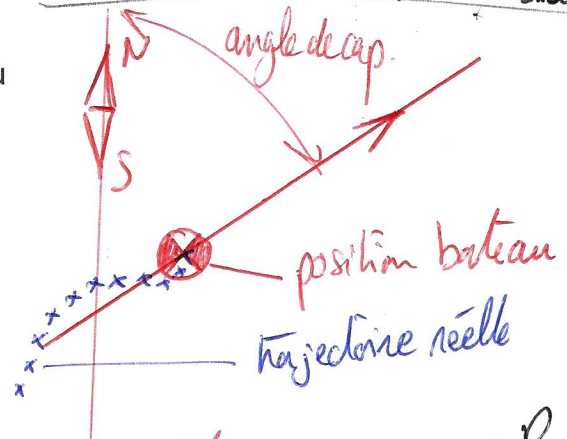 N
angle de cap.
S
position bateau
trajectoire réélle